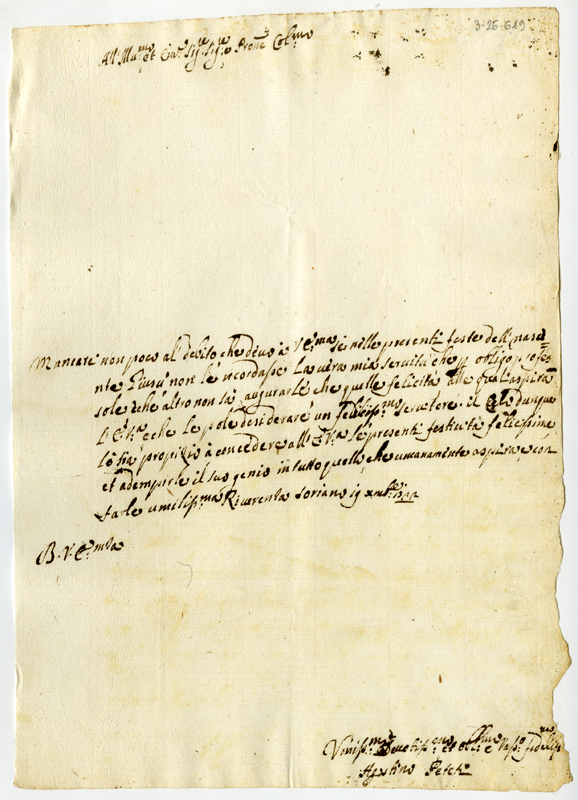 3-25-619
All Ill.mo et Em.o Sig.re Sig.re Prone Col.mo
Mancarei non poco al debito che devo à V. E.ma se nelle presenti feste dell nasci=
nte Giesù non le ricordasse la vera mia servitù che p obligo profes
sole, che altro non sà augurarle che quelle felicità alle quali aspira
l'E. V.a e che le pole desiderare un fedelliss.mo servitore: il Cielo dunque
le sia propizio à concedere all E. V.a le presenti festività felicissime
et adempirle il suo genio in tutto quello che umanamente aspira e con
farle umilis.ma Riverenza Soriano 19 xmbre
B. V. E.mza
Umiliss.mo Devotiss.mo et Obl.mo Vass.o fedeliss.mo
Agostino